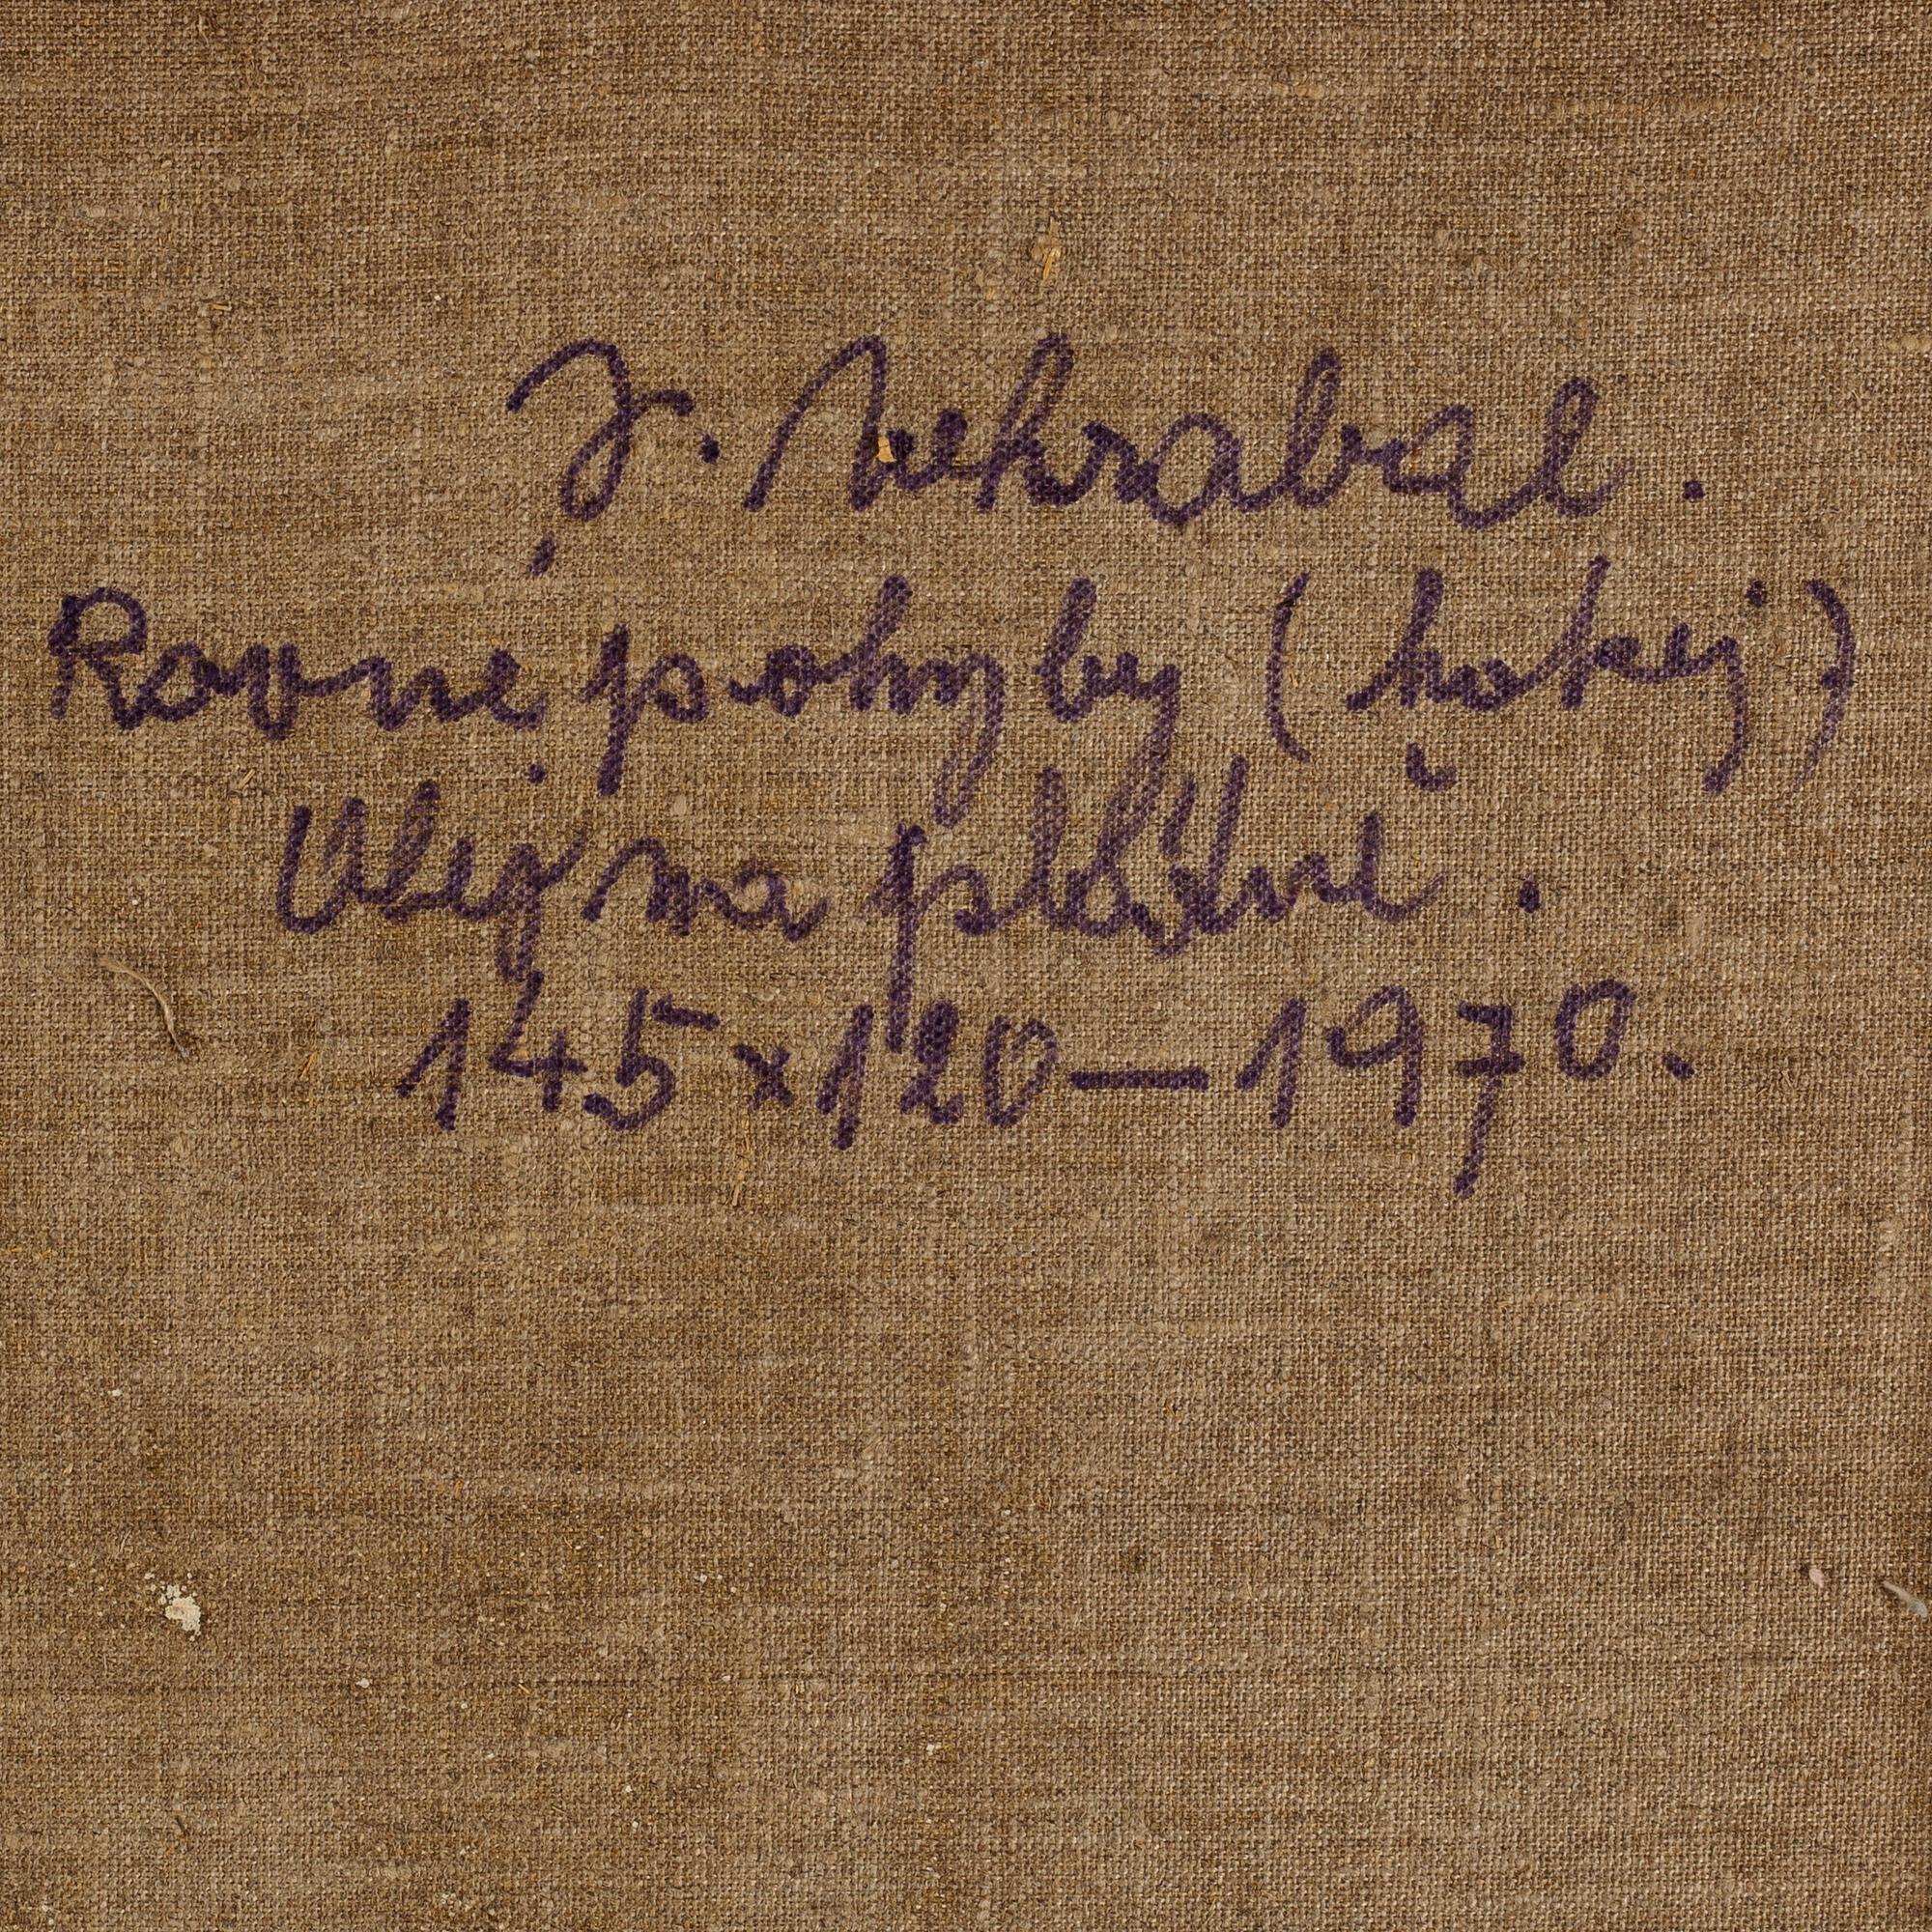 J. Nehrabal.
Rovné pohyby (hokej)
Olej na plátně.
145x120—1970.